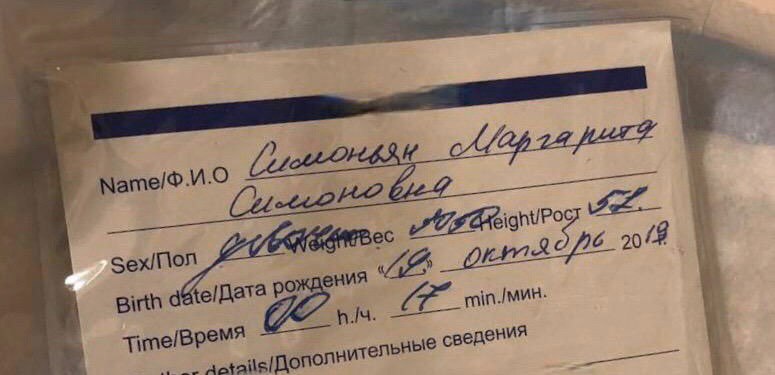 Name/Ф.И.О Симоньян Маргарита
Симоновна
Sex/Пол девочка Weight/Вес Height/Рост 57.
Birth date/Дата рождения "19" октябрь 2019
Time/Время 00 h./ч. 17 min./мин.
details/Дополнительные сведения